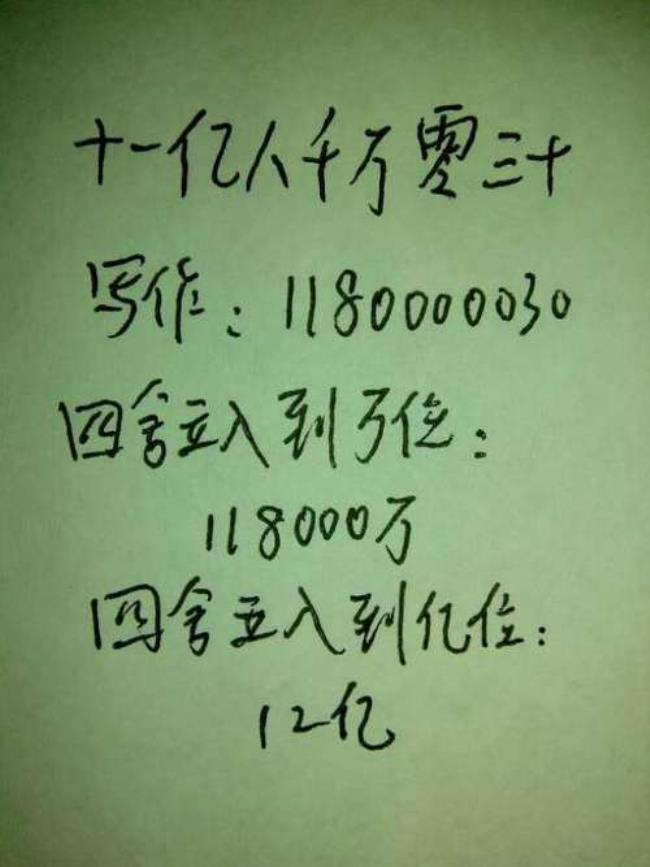 十一亿八千万零三十
写作：1180000030
四舍五入到万位：
118000万
四舍五入到亿位：
12亿